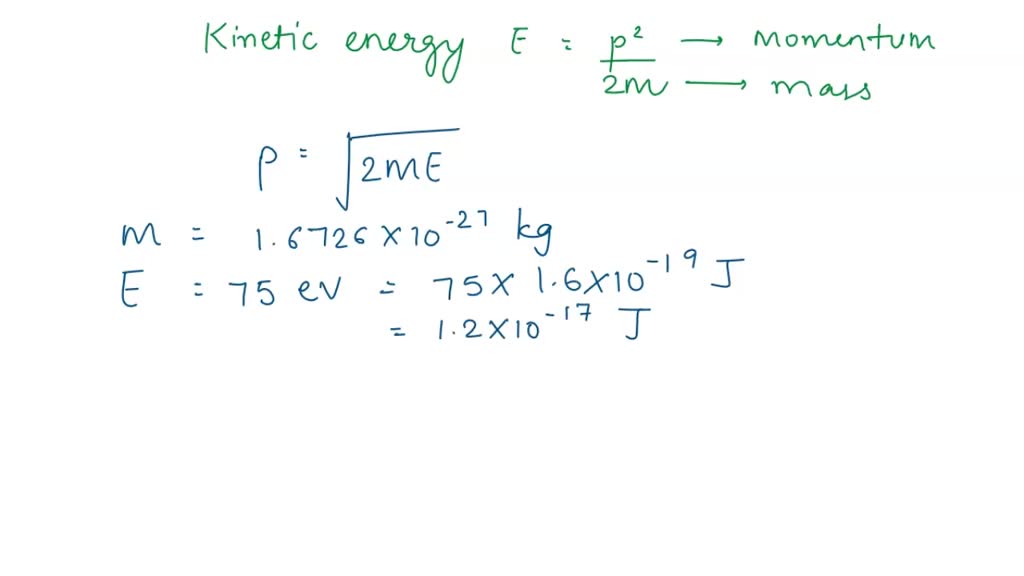 Kinetic energy E = p²/2m → momentum → mass
p = √2mE
m = 1.6726 × 10⁻²⁷ kg
E = 75 ev = 75 × 1.6 × 10⁻¹⁹ J
= 1.2 × 10⁻¹⁷ J